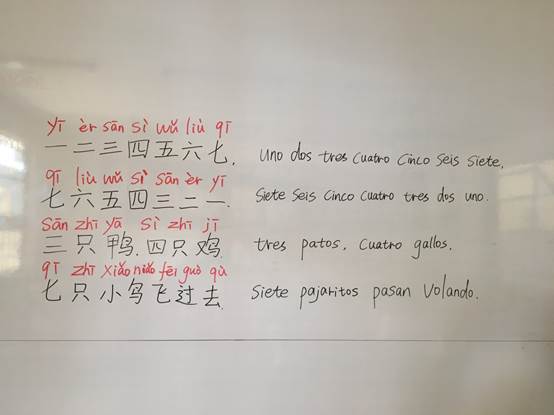 yī èr sān sì wǔ liù qī
一二三四五六七. Uno dos tres cuatro cinco seis siete.
qī liù wǔ sì sān èr yī
七六五四三二一. Siete seis cinco cuatro tres dos uno.
sān zhī yā sì zhī jī
三只鸭.四只鸡. tres patos. Cuatro gallos.
qī zhī xiǎo niǎo fēi guò qù
七只小鸟飞过去. Siete pajaritos pasan volando.